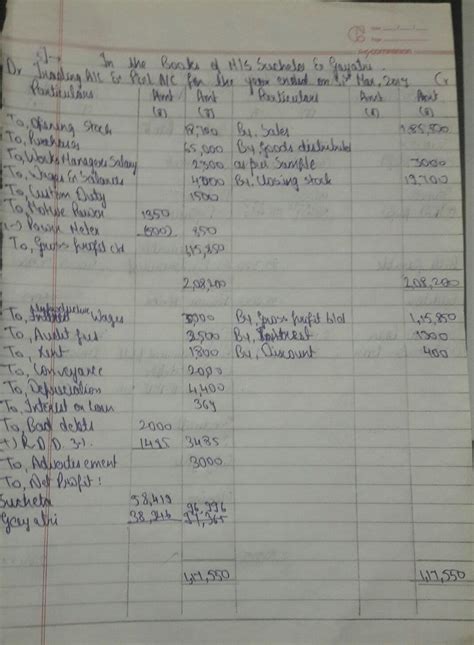 In the Books of M/S Sucheta & Gayatri.
Dr Trading A/C & P&L A/C for the year ended on 31st Mar, 2017 Cr
Particulars Amt Amt Particulars Amt Amt
(₹) (₹) (₹) (₹)
To, Opening Stock 18,700 By, Sales 1,85,500
To, Purchases 65,000 By, Goods distributed
To, Works Managers Salary 2300 as per Sample 3000
To, Wages & Salaries 4000 By, Closing stock 19,700
To, Custom Duty 1500
To, Motive Power 1350
(-) Power Meter (500) 850
To, Gross profit c/d 1,15,850
2,08,200 208,200
To, Unproductive Wages 3000 By, Gross profit b/d 1,15,850
To, Audit fees 2500 By, Interest 1300
To, Rent 1800 By, Discount 400
To, Conveyance 2000
To, Depreciation 4,400
To, Interest on Loan 369
To, Bad debts 2000
(+) R.D.D 3% 1495 3485
To, Advertisement 3000
To, Net Profit:
Sucheta 58,419
Gayatri 38,946
1,17,550 1,17,550